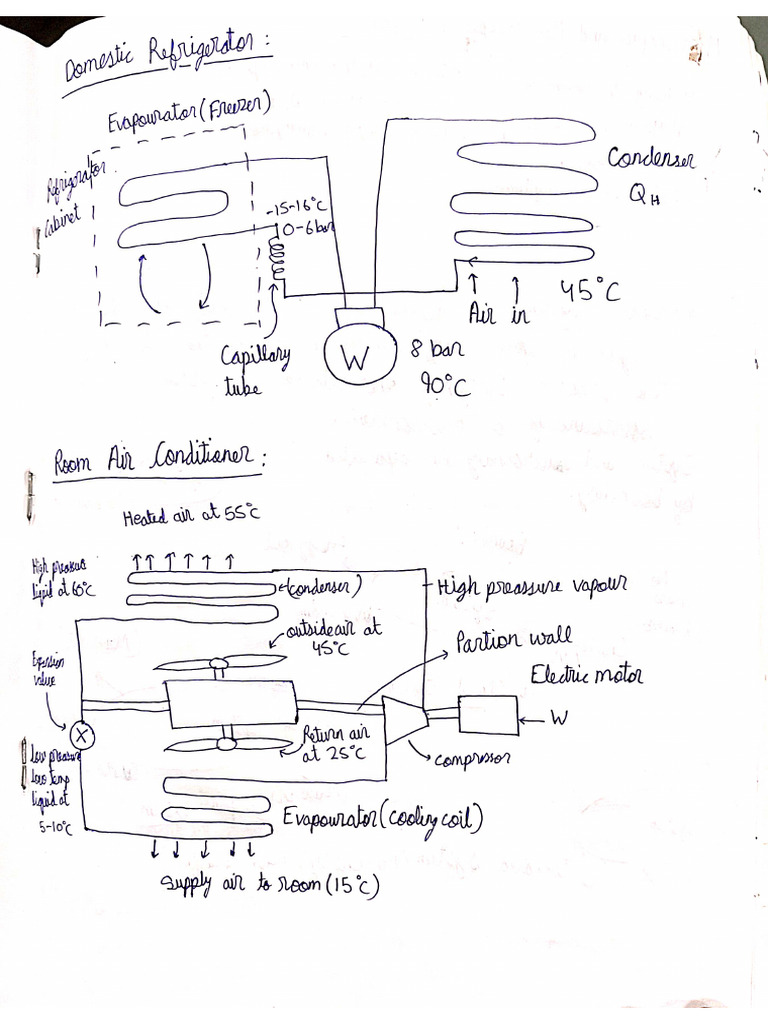 Domestic Refrigerator :
Evapourator (Freezer)
Refrigerator
Cabinet
-15-16°C
0-6 bar
Condenser
QH
45°C
Air in
Capillary
tube
W
8 bar
90°C
Room Air Conditioner :
Heated air at 55°C
High pressure
liquid at 60°C
(condenser)
High preassure vapour
outside air at
45°C
Partion wall
Expansion
valve
Electric motor
X
W
Return air
at 25°C
compressor
Low pressure
low temp
liquid at
5-10°C
Evapourator (cooling coil)
Supply air to room (15°C)